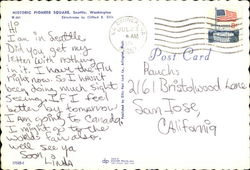 HISTORIC PIONEER SQUARE, Seattle, Washington
Ektachrome by Clifford B. Ellis
Hi
I am in Seattle.
Did you get my
letter with nothing
I have the flu
right now. So I wasn't
been doing much sight
seeing. If I feel
better by tomorrow
I am going to Canada.
I might go to the
words fair also.
Well see ya
Soon
Post Card
Pauchs
2161 Bristolwood Lane
San Jose,
California